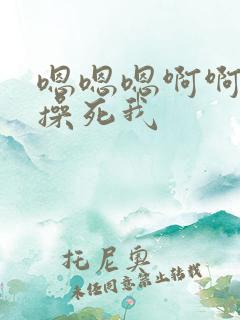 嗯嗯嗯啊啊
操死我
托尼奥
未经同意禁止转载